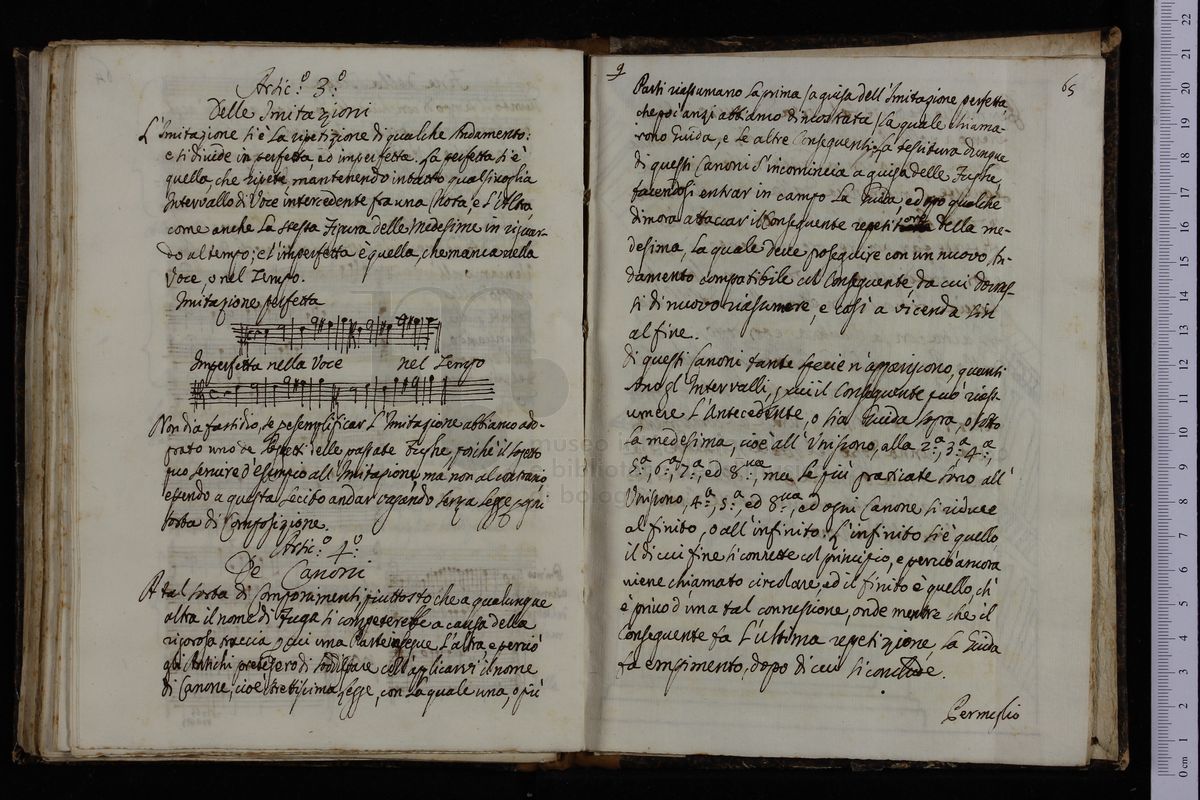 Artic.º 3.º
Delle Imitazioni
L'Imitazione si è la ripetizione di qualche Andamento:
e si divide in perfetta ed imperfetta. La perfetta si è
quella, che ripete, mantenendo intatto qualsivoglia
Intervallo di Voce intercedente fra una Nota, e l'Altra,
come anche la stessa Figura delle Medesime in riguar-
do al tempo; e l'imperfetta è quella, che manca nella
Voce, o nel Tempo.
Imitazione perfetta
Imperfetta nella Voce nel Tempo
Non dia fastidio, se p esemplificar l'Imitazione abbiamo ado-
prato uno de Sogetti delle passate Fughe, poiché il sogetto
può servire d'esempio all'Imitazione, ma non al contrario
essendo a questa lecito andar vagando senza legge ogni
sorta di Composizione.
Artic.º 4.º
De Canoni
A tal sorta di Componimenti piuttosto che a qualunque
altra il nome di Fuga si competerebbe a causa della
rigorosa traccia p cui una Parte insegue l'altra, e perciò
gli Antichi pretesero di soddisfare coll'applicarvi il nome
di Canone; cioè strettissima legge, con la quale una, o più
9
65
Parti riassumano la prima (a guisa dell'Imitazione perfetta
che poc'anzi abbiamo dimostrata) la quale chiama-
rono Guida, e le altre Conseguenti. La tessitura dunque
di questi Canoni s'incomincia a guisa delle Fughe,
facendosi entrar in campo la Guida, ed dopo qualche
dimora attaccar il Conseguente repetitore della me-
desima, la quale deve proseguire con un nuovo, An-
damento compatibile col Conseguente da cui dovras-
si di nuovo riassumere, e così a vicenda sin
al fine.
Di questi Canoni tante specie n'appariscono, quanti
sono gl'Intervalli, p cui il Conseguente può riass-
umere l'Antecedente, o sia Guida sopra, o sotto
la medesima, cioè all'Unisono, alla 2.ª, 3.ª, 4.ª,
5.ª, 6.ª, 7.ª, ed 8.va, ma le più praticate sono all'
Unisono, 4.ª, 5.ª, ed 8.va, ed ogni Canone si riduce
al finito, o all'infinito. L'infinito si è quello,
il di cui fine si connette col principio, e perciò ancora
viene chiamato circolare, ed il finito è quello, ch'
è privo d'una tal connessione, onde mentre che il
Conseguente fa l'ultima repetizione, la Guida
fa empimento, dopo di cui si conclude.
Per meglio